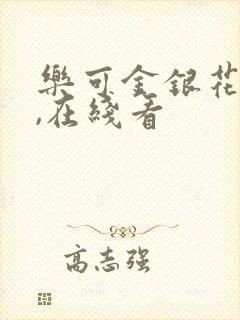 樂可金銀花
,在綫看
高志强